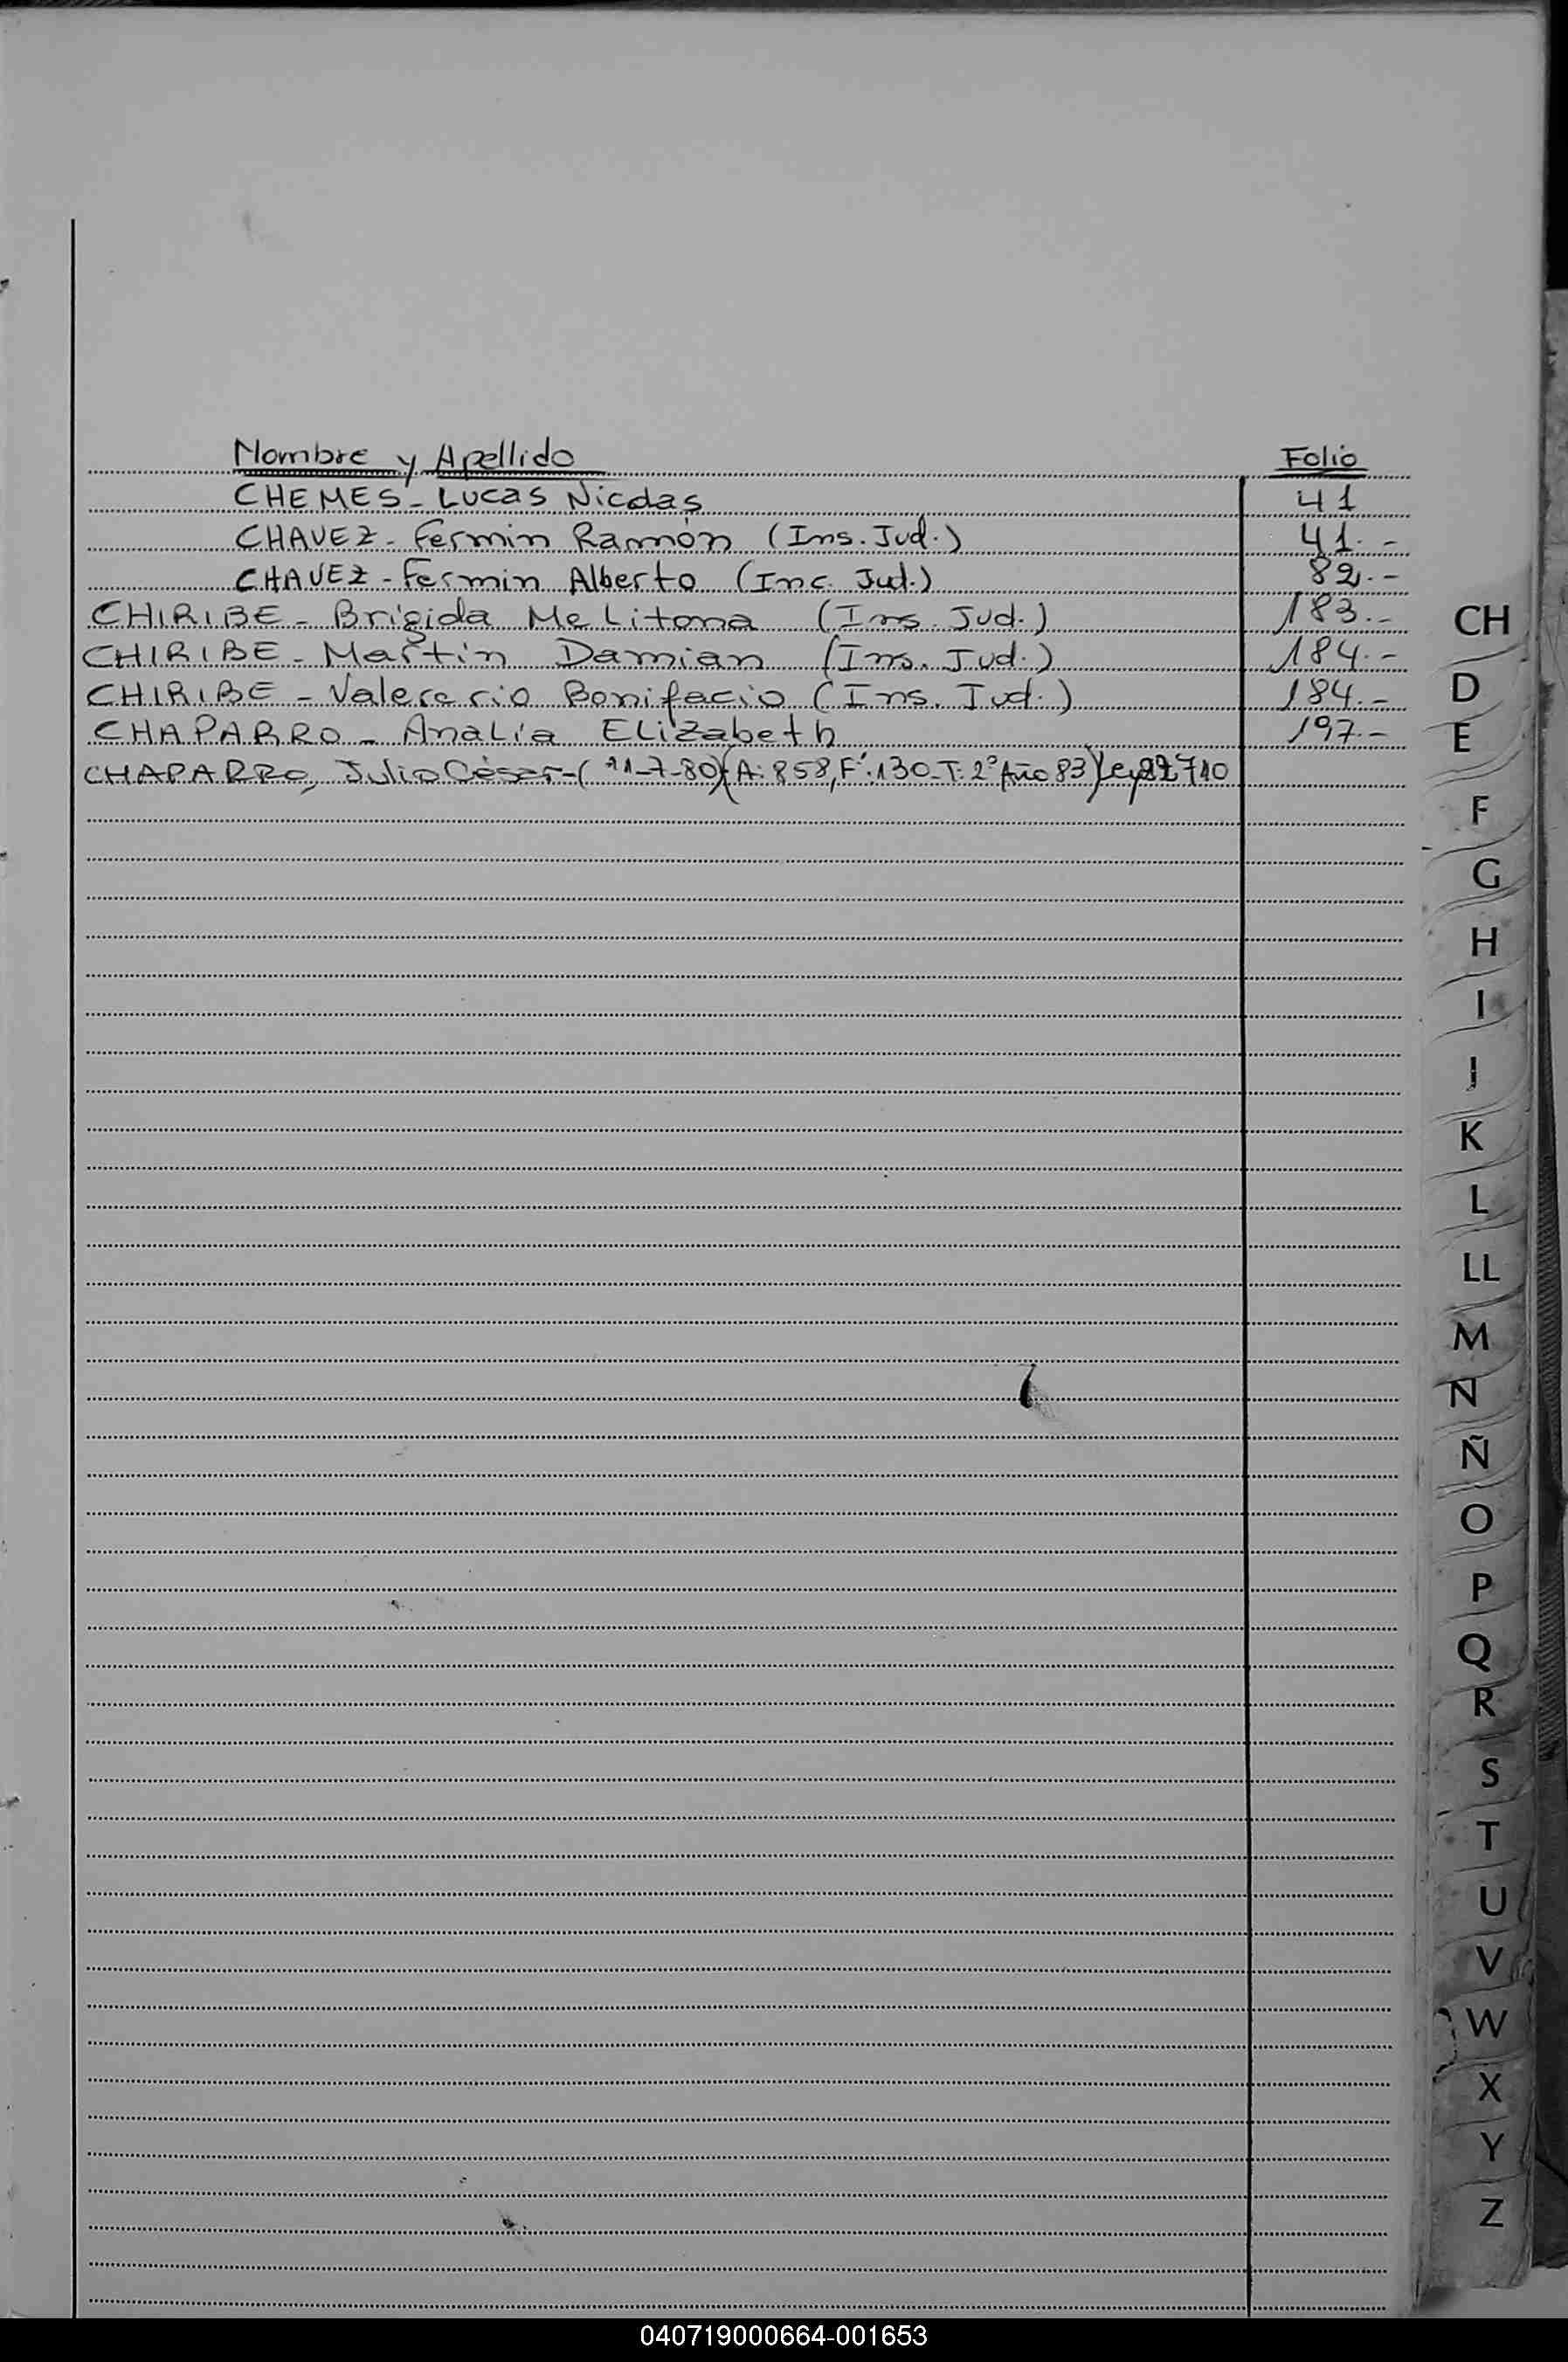 Nombre y Apellido Folio
CHEMES - Lucas Nicolas 41
CHAVEZ - Fermin Ramón (Ins. Jud.) 41.-
CHAVEZ - Fermin Alberto (Inc. Jud.) 82.-
CHIRIBE - Brigida Melitona (Ins. Jud.) 183.-
CHIRIBE - Martin Damian (Ins. Jud.) 184.-
CHIRIBE - Bonifacio (Ins. Jud.) 184.-
CHAPARRO - Analía Elizabeth 197.-
CHAPARRO, Julio César - ( 21-7-80) (A: 858, Fº: 130 - T: 2º Año 83) Ley 22710
CH
D
E
F
G
H
I
J
K
L
LL
M
N
Ñ
O
P
Q
R
S
T
U
V
W
X
Y
Z
040719000664-001653